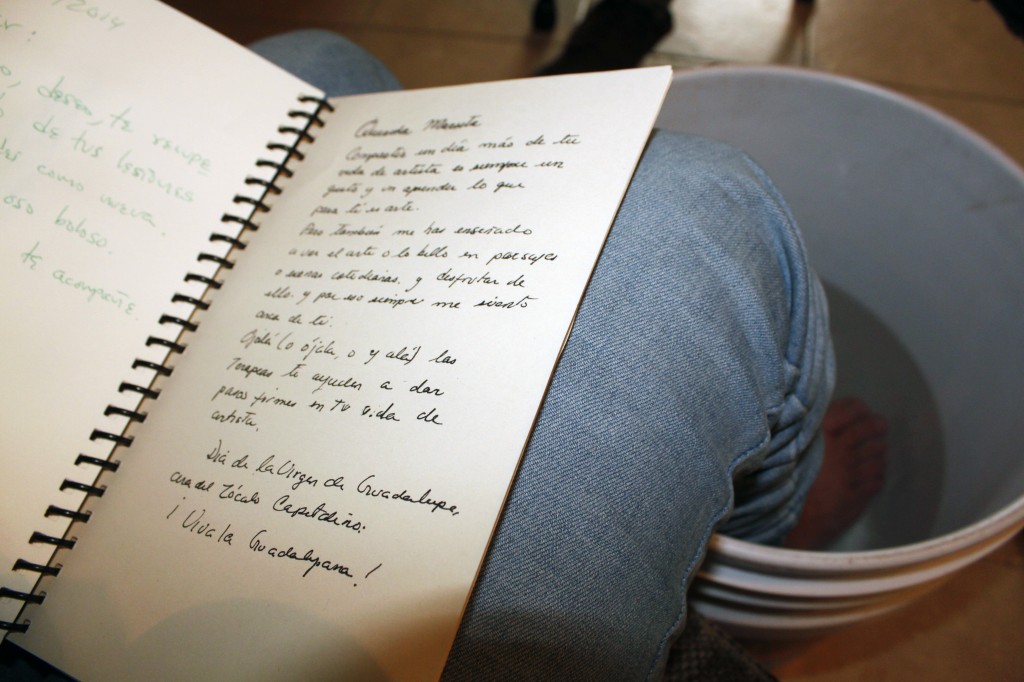 /2014
deseo, te recupe
de tus lesiones
como nueva.
oso baboso.
te acompañe.
Querida
Compartir un día más de tu
vida de artista es siempre un
gusto y un aprender lo que
para ti es arte.
Pero también me has enseñado
a ver el arte o lo bello en paisajes
o escenas cotidianas, y disfrutar de
ello, y por eso siempre me siento
cerca de ti.
Ojalá (o ójala, o y alá) las
terapias te ayuden a dar
pasos firmes en tu vida de
artista.
Día de la Virgen de Guadalupe,
cerca del Zócalo Capitalino.
¡Viva la Guadalupana!